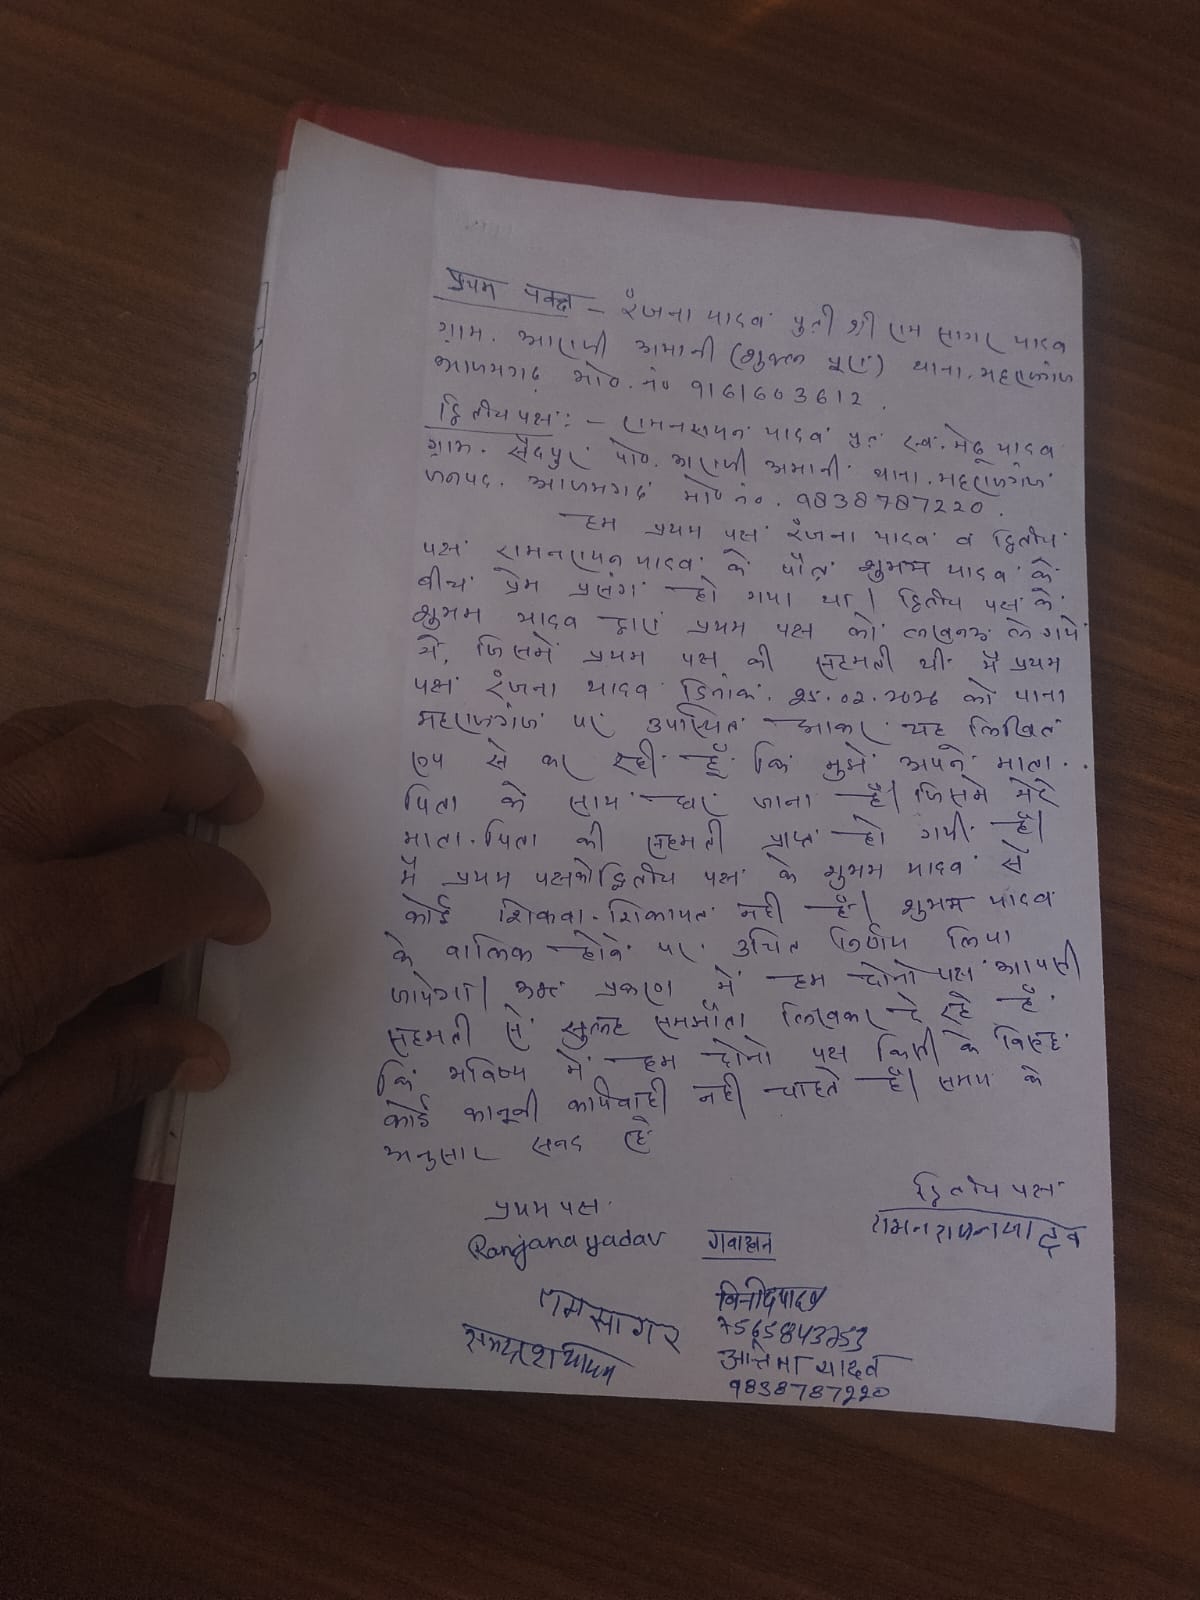 प्रथम पक्ष – रंजना यादव पुत्री श्री राम सागर यादव
ग्राम. आराजी अमानी (शुक्ल पूरा) थाना. महराजगंज
आजमगढ़ मो०.नं० 9161603612.
द्वितीय पक्षः – रामनरायन यादव पुत्र स्व. मेढू यादव
ग्राम. सैदपुर पो०. अराजी अमानी थाना. महराजगंज
जनपद. आजमगढ़ मो० नं०. 9838787220.
हम प्रथम पक्ष रंजना यादव व द्वितीय
पक्ष रामनरायन यादव के पौत्र शुभम यादव के
बीच प्रेम प्रसंग हो गया था। द्वितीय पक्ष के
शुभम यादव द्वारा प्रथम पक्ष को लखनऊ ले गये
थे, जिसमें प्रथम पक्ष की सहमती थी मैं प्रथम
पक्ष रंजना यादव दिनांक. 25.02.2026 को थाना
महराजगंज पर उपस्थित आकर यह लिखित
रूप से कर रही हूँ कि मुझे अपने माता..
पिता के साथ घर जाना है। जिसमे मेरे
माता.पिता की सहमती प्राप्त हो गयी है।
मैं प्रथम पक्ष को द्वितीय पक्ष के शुभम यादव से
कोई शिकवा.शिकायत नही है। शुभम यादव
के वालिक होने पर उचित निर्णय लिया
जायेगा। उक्त प्रकरण में हम दोनो पक्ष आपसी
सहमती से सुलह समझौता लिखकर दे रहे हैं
कि भविष्य में हम दोनो पक्ष किसी के विरुद्ध
कोई कानूनी कार्यवाही नही चाहते हैं। समय के
अनुसार सनद रहे
द्वितीय पक्ष
प्रथम पक्ष
रामनरायन यादव
Ranjana yadav
गवाहान
रामसागर
विनोद यादव
7565843253
यादव
9838787220